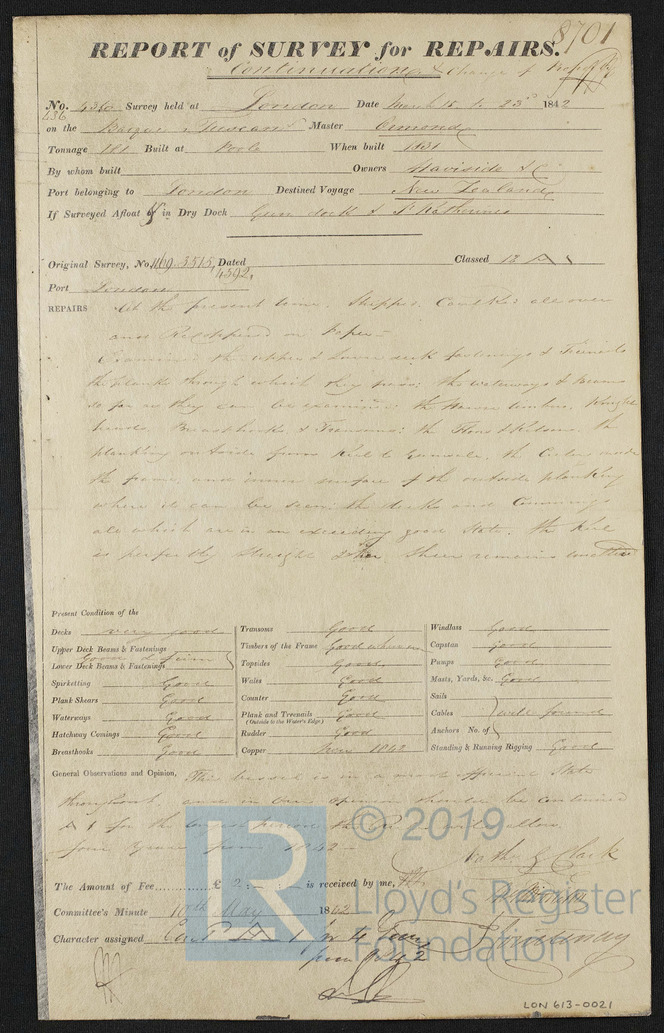 8701
REPORT of SURVEY for REPAIRS.
Continuation & Change of
No. 436 Survey held at London Date March 15 to 23d 1842
436
on the Barque "Tuscan" Master Ormond
Tonnage 181 Built at Poole When built 1831
By whom built Owners Haviside & Co
Port belonging to London Destined Voyage New Zealand
If Surveyed Afloat or in Dry Dock Gun dock & St Katherines
Original Survey, No. 469. 3515, Dated Classed 12 A 1
4592.
Port London
REPAIRS At the present time. Stripped, Caulked all over
and Recoppered on Paper
Examined the upper & lower deck fastenings & Treenails
the planks through which they pass; the waterways & Beams
so far as they can be examined; the Hawse timbers, Knight
heads, Breasthooks, & Transoms; the Floors & Kelson. the
planking outside from Keel to Gunwale. the Cutters
the frame, and inner surface of the outside planking
where it can be seen. the decks and Commings
all which are in an exceeding good State. the Keel
is perfectly straight & the Sheer remains unaltered
Present Condition of the
Decks very good
Upper Deck Beams & Fastenings
Good & firm
Lower Deck Beams & Fastenings
Spirketting Good
Plank Shears Good
Waterways Good
Hatchway Comings Good
Breasthooks Good
Transoms Good
Timbers of the Frame Good where seen
Topsides Good
Wales Good
Counter Good
Plank and Treenails Good
(Outside to the Water's Edge)
Rudder Good
Copper New 1842
Windlass Good
Capstan Good
Pumps Good
Masts, Yards, &c. Good
Sails
Cables well found
Anchors No. of
Standing & Running Rigging Good
General Observations and Opinion, This vessel is in a most efficient State
throughout, and in our opinion should be continued
A 1 for the longest period the Rules will allow.
four Years from 1842
Nathl G Clark
The Amount of Fee £ 2 : - : - is received by me,
Committee's Minute 10th May 1842
Character assigned Cont A 1 for 4 Years
from 1842
© 2019
Lloyd's Register
Foundation
LR
LON 613-0021